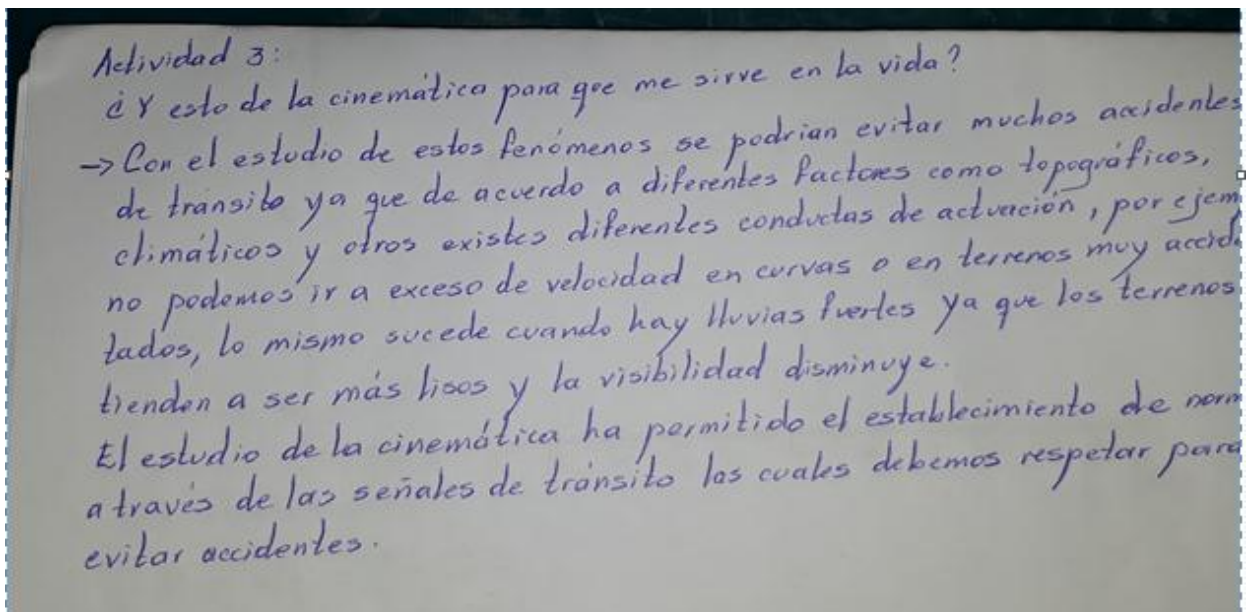 Actividad 3:
¿Y esto de la cinemática para que me sirve en la vida?
→ Con el estudio de estos fenómenos se podrían evitar muchos accidentes
de tránsito ya que de acuerdo a diferentes factores como topográficos,
climáticos y otros existes diferentes conductas de actuación, por ejem
no podemos ir a exceso de velocidad en curvas o en terrenos muy accid
tados, lo mismo sucede cuando hay lluvias fuertes ya que los terrenos
tienden a ser más lisos y la visibilidad disminuye.
El estudio de la cinemática ha permitido el establecimiento de norm
a través de las señales de tránsito las cuales debemos respetar para
evitar accidentes.